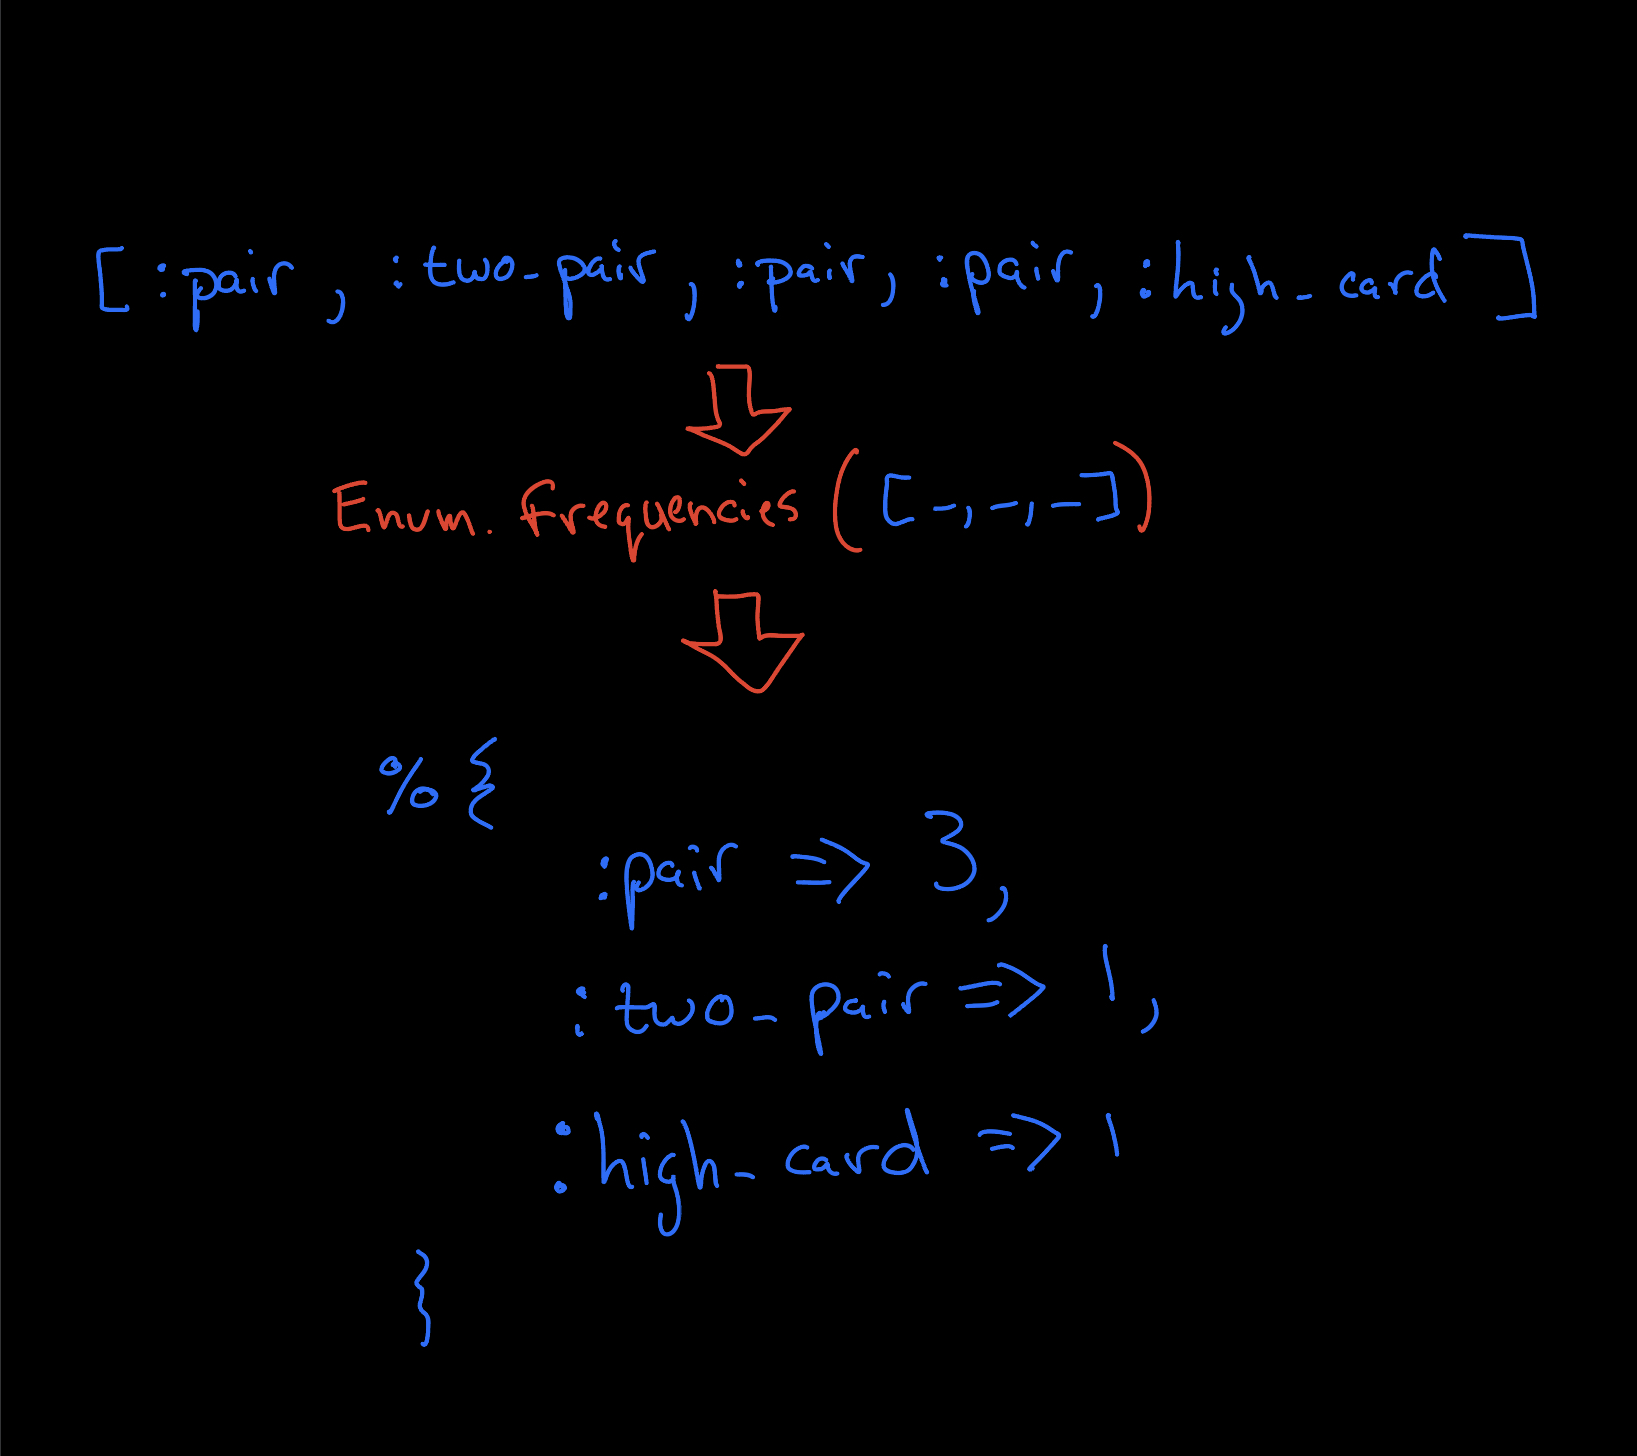 [:pair, :two_pair, :pair, :pair, :high_card]
Enum.frequencies([-,-,-])
%{
:pair => 3,
:two_pair => 1,
:high_card => 1
}